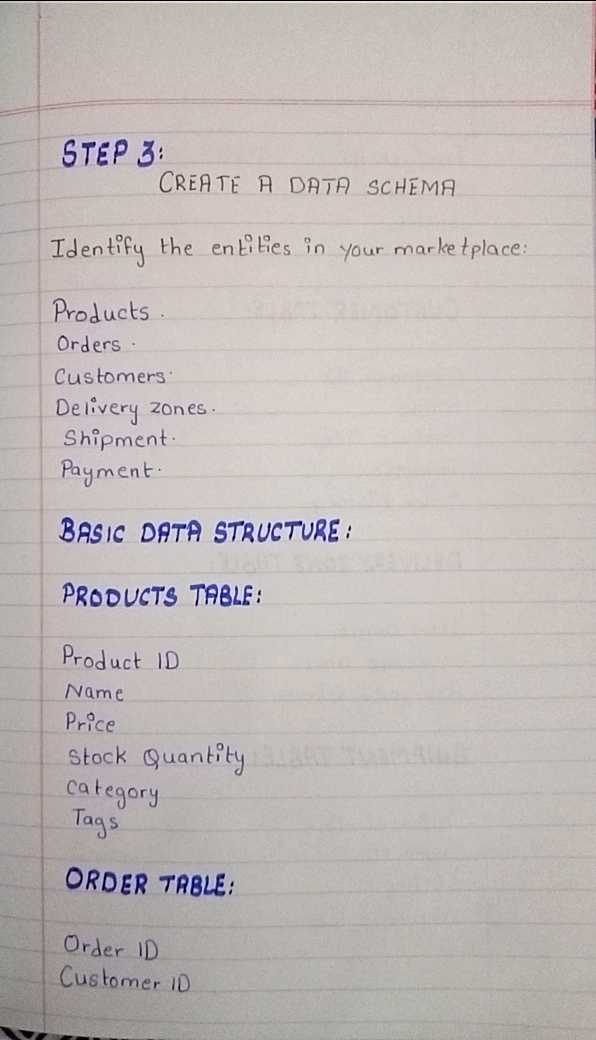 STEP 3:
CREATE A DATA SCHEMA
Identify the entities in your marketplace:
Products.
Orders.
Customers.
Delivery zones.
Shipment.
Payment.
BASIC DATA STRUCTURE:
PRODUCTS TABLE:
Product ID
Name
Price
Stock Quantity
Category
Tags
ORDER TABLE:
Order ID
Customer ID